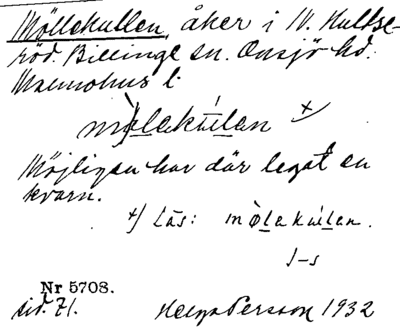 Möllekullen, åker i N. Hultse-
röd. Billinge sn. Onsjö hd.
Malmöhus l:
mølakulan x)
Möjligen har där legat en
kvarn.
x) Läs: mø̀lakúlan.
J-s
Nr 5708.
sid. 71. Helga Persson 1932